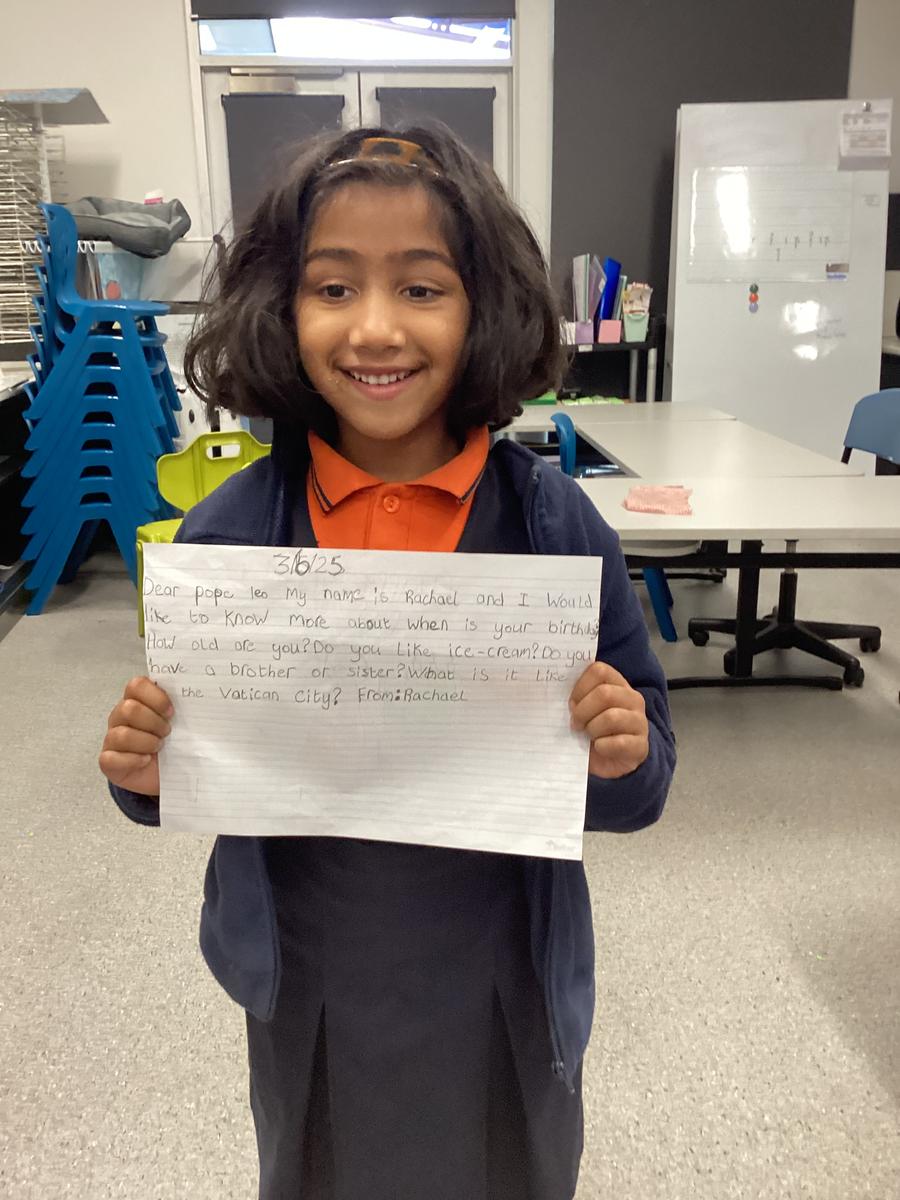 3/6/25
Dear pope leo My name is Rachael and I Would
like to know more about when is your birthday
How old are you? Do you like ice-cream? Do you
have a brother or sister? What is it like
the Vatican City? From: Rachael